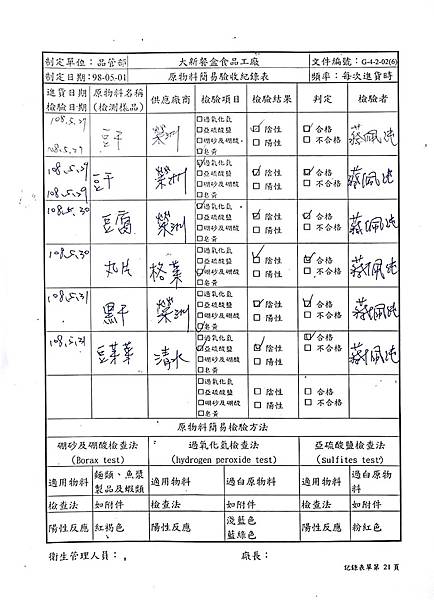 制定單位：品管部 大新餐盒食品工廠 文件編號：G-4-2-02(6)
制定日期：98-05-01 原物料簡易驗收紀錄表 頻率：每次進貨時
進貨日期 原物料名稱 供應廠商 檢驗項目 檢驗結果 判定 檢驗者
檢驗日期 (檢測樣品)
108.5.29 豆干 榮洲 □過氧化氫 □亞硫酸鹽 □硼砂及硼酸 □皂黃 ☑陰性 □陽性 ☑合格 □不合格 蔡佩純
108.5.29
108.5.29 豆干 榮洲 ☑過氧化氫 □亞硫酸鹽 □硼砂及硼酸 □皂黃 ☑陰性 □陽性 ☑合格 □不合格 蔡佩純
108.5.29
108.5.30 豆腐 榮洲 ☑過氧化氫 □亞硫酸鹽 □硼砂及硼酸 □皂黃 ☑陰性 □陽性 ☑合格 □不合格 蔡佩純
108.5.30 丸片 格葉 □過氧化氫 □亞硫酸鹽 ☑硼砂及硼酸 □皂黃 ☑陰性 □陽性 ☑合格 □不合格 蔡佩純
108.5.31 黑干 榮洲 □過氧化氫 □亞硫酸鹽 □硼砂及硼酸 ☑皂黃 ☑陰性 □陽性 ☑合格 □不合格 蔡佩純
108.5.31 豆芽菜 清水 □過氧化氫 ☑亞硫酸鹽 □硼砂及硼酸 □皂黃 ☑陰性 □陽性 ☑合格 □不合格 蔡佩純
□過氧化氫 □亞硫酸鹽 □硼砂及硼酸 □皂黃 □陰性 □陽性 □合格 □不合格
原物料簡易檢驗方法
硼砂及硼酸檢查法 過氧化氫檢查法 亞硫酸鹽檢查法
(Borax test) (hydrogen peroxide test) (sulfites test)
適用物料 麵類、魚漿製品及蝦類 適用物料 過白原物料 適用物料 過白原物料
檢查法 如附件 檢查法 如附件 檢查法 如附件
陽性反應 紅褐色 陽性反應 淺藍色 藍綠色 陽性反應 粉紅色
衛生管理人員： 廠長：
記錄表單第 21 頁